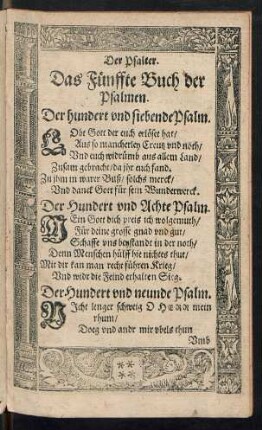 Der Psalter.
Das Fünffte Buch der
Psalmen.
Der hundert vnd siebende Psalm.
LObt Gott der euch erlöset hat/
Aus so mancherley Creutz vnd noth/
Vnd euch widrumb aus allem Land/
Zusam gebracht/ da jhr euch fand.
Zu jhm in warer Buß/ solchs merck/
Vnd danck Gott für sein Wunderwerck.
Der Hundert vnd Achte Psalm.
MEin Gott dich preis ich wolgemuth/
Für deine grosse gnad vnd gut/
Schaffe vns beystandt in der noth/
Denn Menschen hülff hie nichtes thut/
Mit dir kan man recht führen Krieg/
Vnd widr die Feind erhalten Sieg.
Der Hundert vnd neunde Psalm.
NJcht lenger schweig O HERR mein
rhum/
Doeg vnd andr mir vbels thun
Vmb